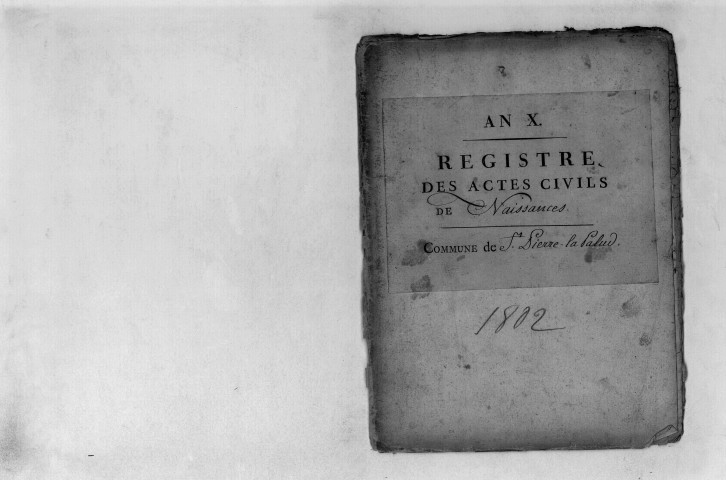 AN X.
REGISTRE
DES ACTES CIVILS
DE Naissances.
COMMUNE de St. Pierre-la Palud.
1802